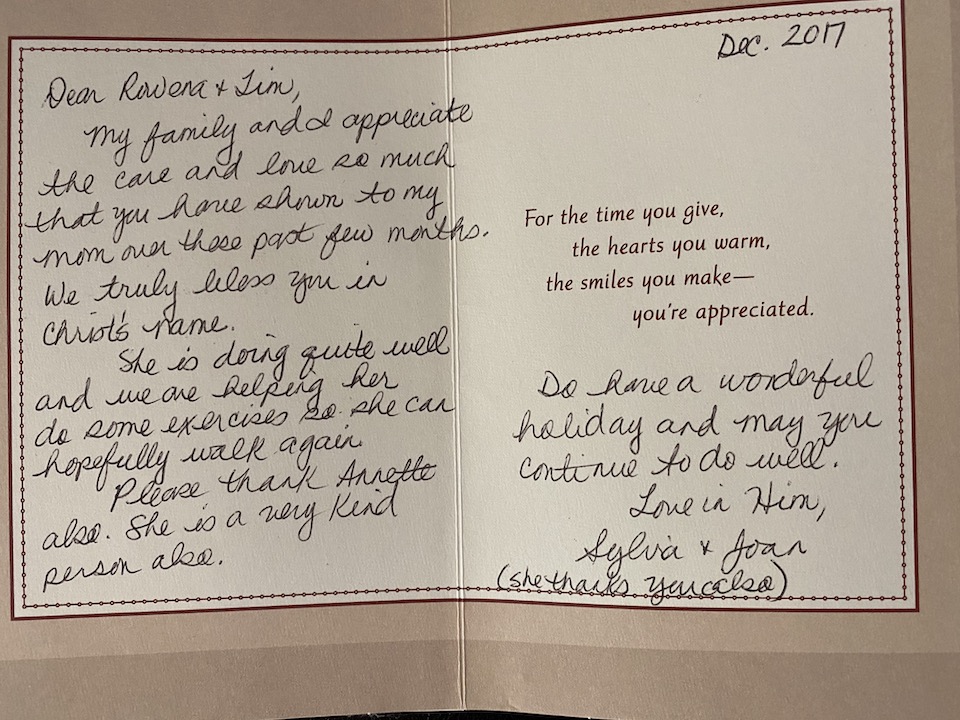 Dear Rowena & Tim,
My family and I appreciate
the care and love so much
that you have shown to my
mom over these past few months.
We truly bless you in
Christ's name.
She is doing quite well
and we are helping her
do some exercises so she can
hopefully walk again.
Please thank Annette
also. She is a very kind
person also.
Dec. 2017
For the time you give,
the hearts you warm,
the smiles you make—
you're appreciated.
Do have a wonderful
holiday and may you
continue to do well.
Love in Him,
Sylvia & Joan
(she thanks you also)